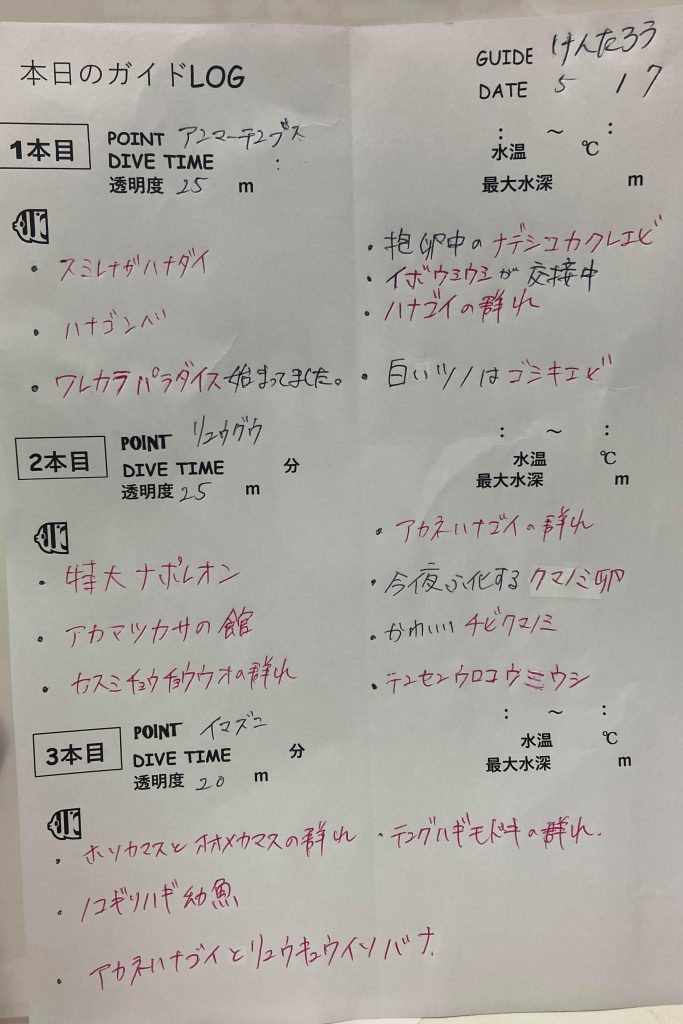 本日のガイドLOG
GUIDE けんたろう
DATE 5 17
1本目
POINT アンマーテンブス
DIVE TIME :
透明度 25 m
: ～ :
水温 ℃
最大水深 m
・スミレナガハナダイ
・ハナゴンベ
・ワレカラパラダイス始まってました。
・抱卵中のナデシコカクレエビ
・イボウミウシが交接中
・ハナゴイの群れ
・白いツノはゴミキエビ
2本目
POINT リュウグウ
DIVE TIME 分
透明度 25 m
: ～ :
水温 ℃
最大水深 m
・特大ナポレオン
・アカマツカサの館
・カスミチョウチョウウオの群れ
・アカネハナゴイの群れ
・今夜ふ化するクマノミ卵
・かわいいチビクマノミ
・テンセンウロコウミウシ
3本目
POINT イマズニ
DIVE TIME 分
透明度 20 m
: ～ :
水温 ℃
最大水深 m
・ホソカマスとオオメカマスの群れ
・ノコギリハギ幼魚
・アカネハナゴイとリュウキュウイソバナ.
・テングハギモドキの群れ.